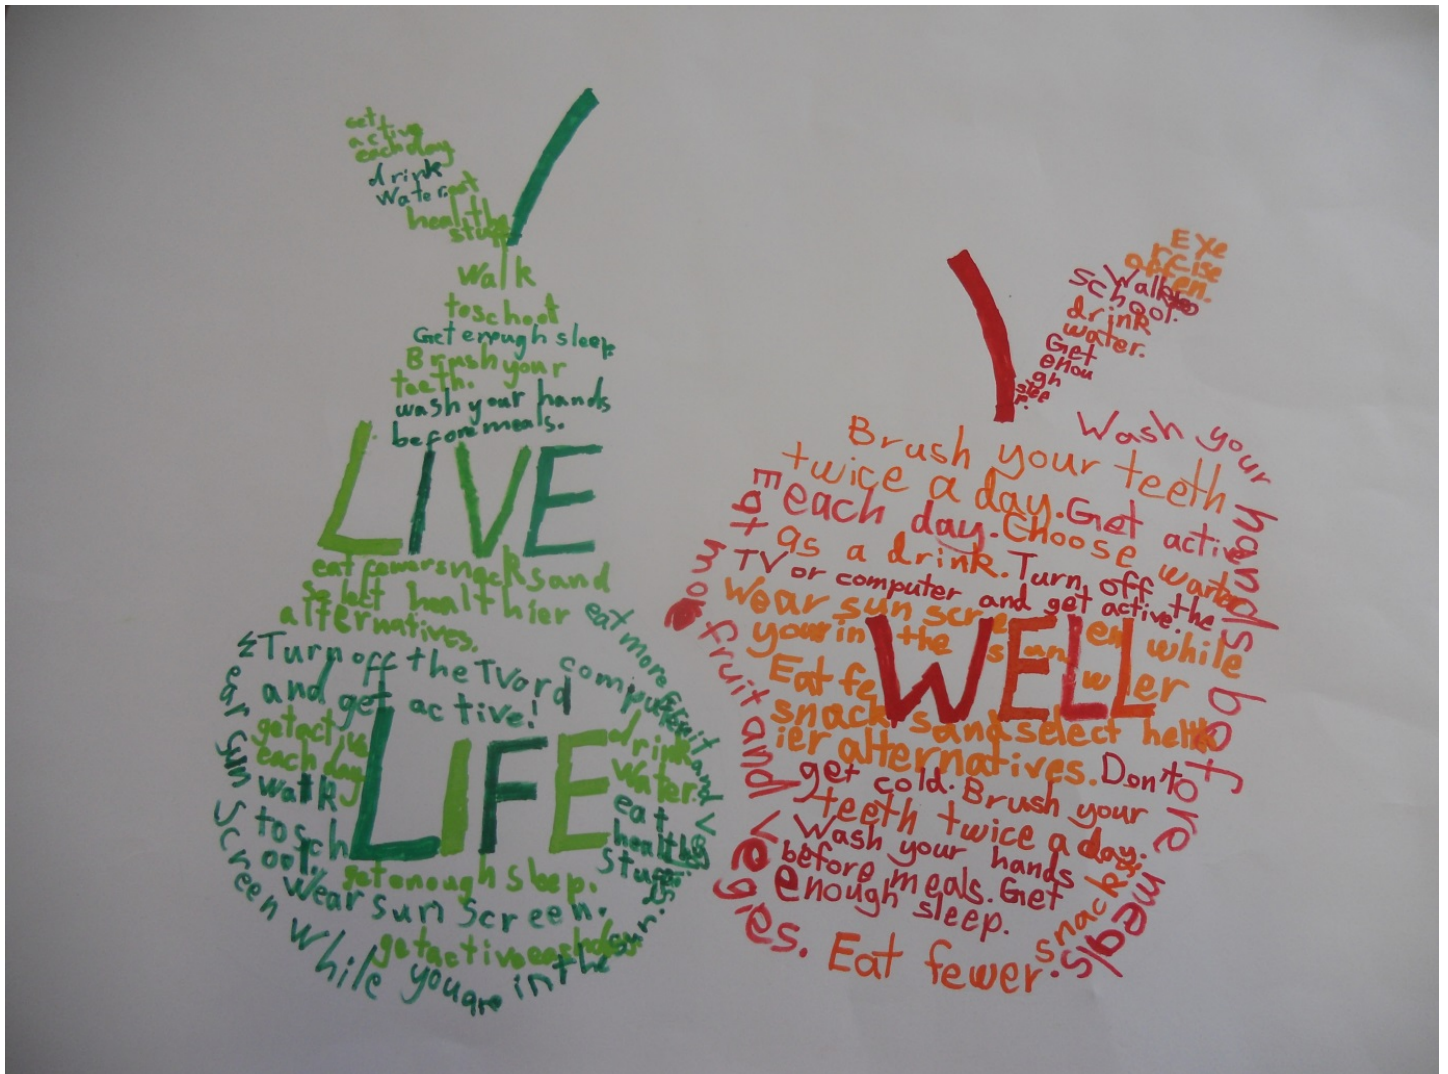 Get
active
each day
drink
Water.eat
healthy
stuff
Walk
to school
Get enough sleep.
Brush your
teeth.
wash your hands
before meals.
LIVE
eat fewer snacks and
select healthier
alternatives.
eat more fruit and veggies.
Turn off the TV or
computer
and get active!
get active
each day
walk
to sch
ool.
LIFE
drink
Water.
eat
healthy
stuff.
get enough sleep.
Wear sun screen.
get active each day
Wear sun
screen while you are in the sun.
Exe
rcise
often.
Walk to
school.
drink
water.
Get
enou
gh
slee
p.
Wash your hands before meals.
Brush your teeth
twice a day. Get active
each day. Choose warter
as a drink. Turn off the
TV or computer and get active.
Wear sun screen while
your in the sun
WELL
Eat fewer
snacks and select health
ier alternatives. Don't
get cold. Brush your
teeth twice a day.
Wash your hands
before meals. Get
enough sleep.
Eat fewer
snacks.
Eat more fruit and vegies.